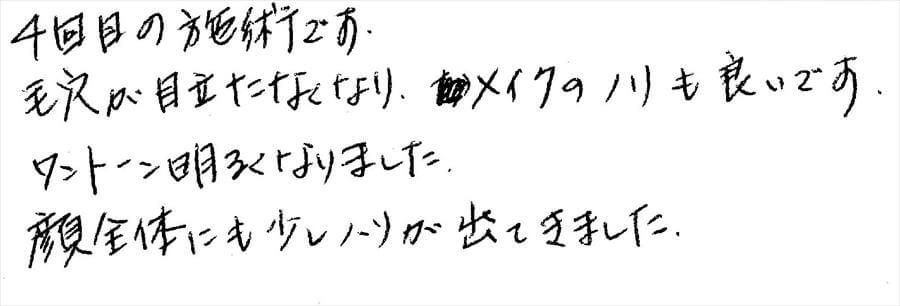 4回目の施術です.
毛穴が目立たなくなり、メイクのノリも良いです.
ワントーン明るくなりました.
顔全体にも少しハリが出てきました.